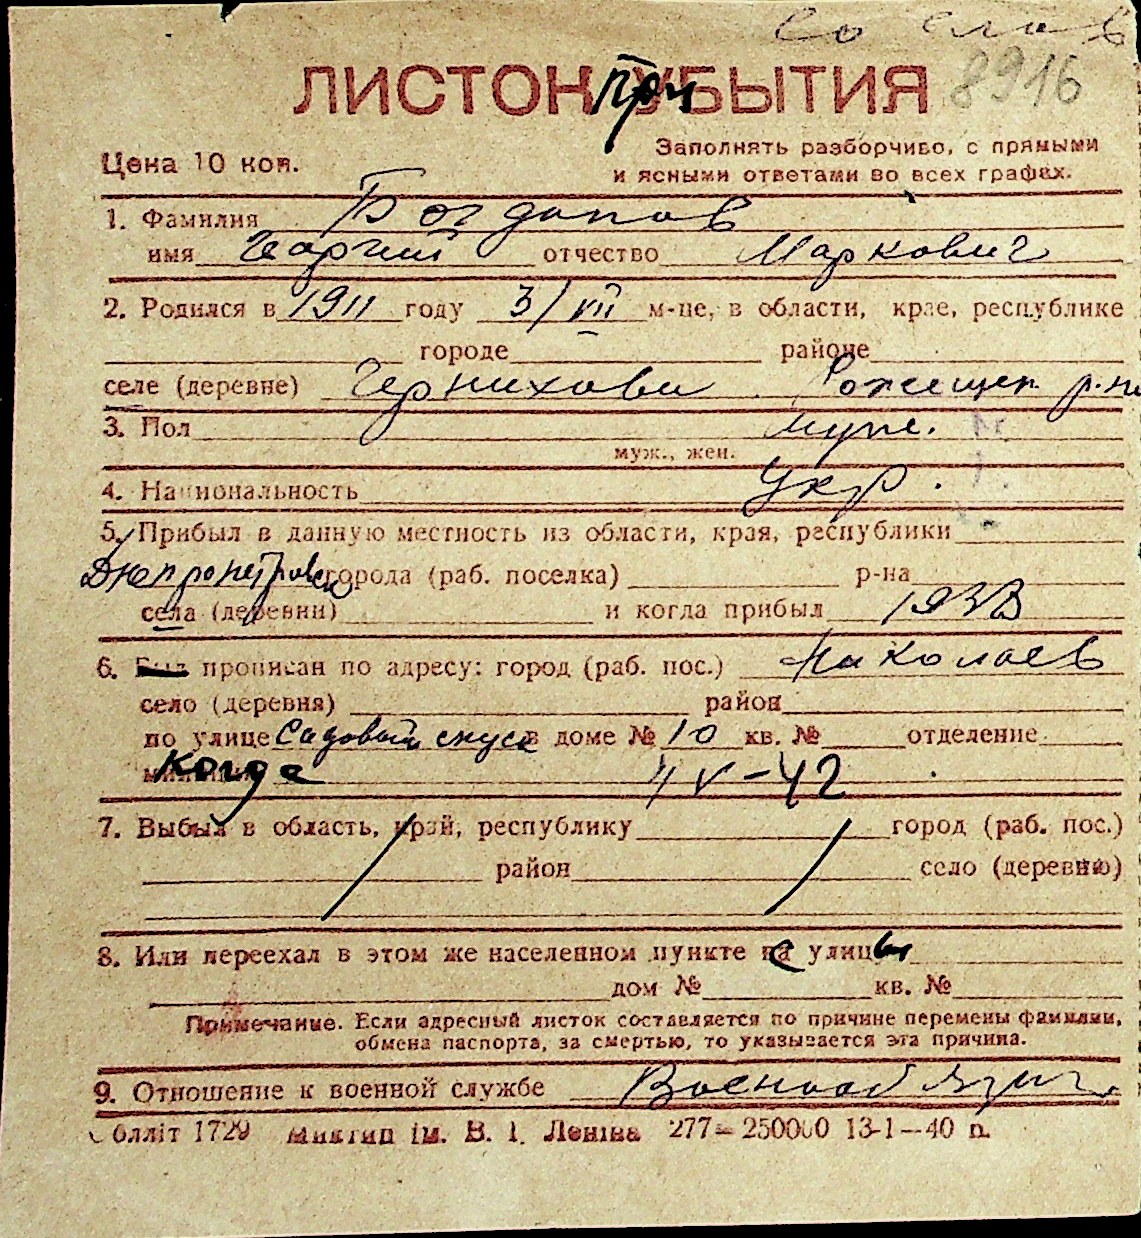 со слов
8916
ЛИСТОК при УБЫТИЯ
Цена 10 коп.
Заполнять разборчиво, с прямыми
и ясными ответами во всех графах.
1. Фамилия Богданов
имя Георгий отчество Маркович
2. Родился в 1911 году 3/VII м-це, в области, крае, республике
городе районе
селе (деревне) Рожищен. р-на
3. Пол муж.
муж., жен.
4. Национальность Укр.
5. Прибыл в данную местность из области, края, республики
Днепропетровск города (раб. поселка) р-на
села (деревни) и когда прибыл 1933
6. Был прописан по адресу: город (раб. пос.) Николаев
село (деревня) район
по улице Садовый спуск в доме № 10 кв. № отделение
когда IV-42
7. Выбыл в область, край, республику город (раб. пос.)
район село (деревню)
8. Или переехал в этом же населенном пункте с улицы
дом № кв. №
Примечание. Если адресный листок составляется по причине перемены фамилии,
обмена паспорта, за смертью, то указывается эта причина.
9. Отношение к военной службе Военнообязан.
Облліт 1729 Миктип ім. В. І. Леніна 277—250000 13-1—40 р.